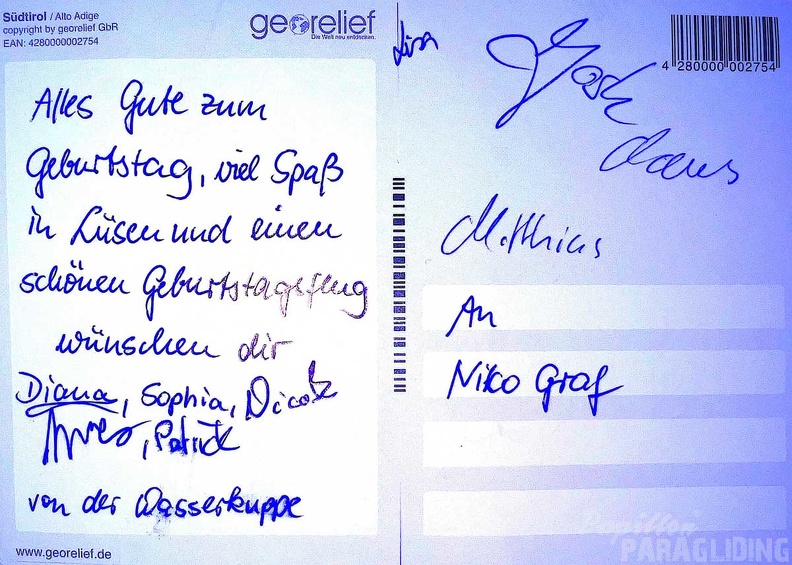 Südtirol / Alto Adige
copyright by georelief GbR
EAN: 4280000002754
georelief
Die Welt neu entdecken.
Alles Gute zum
Geburtstag, viel Spaß
in Lüsen und einen
schönen Geburtstagsflug
wünschen dir
Diana, Sophia, Nicole
, Patrick
von der Wasserkuppe
www.georelief.de
Lisa
4 280000 002754
Matthias
An
Niko Graf
papillon
PARAGLIDING